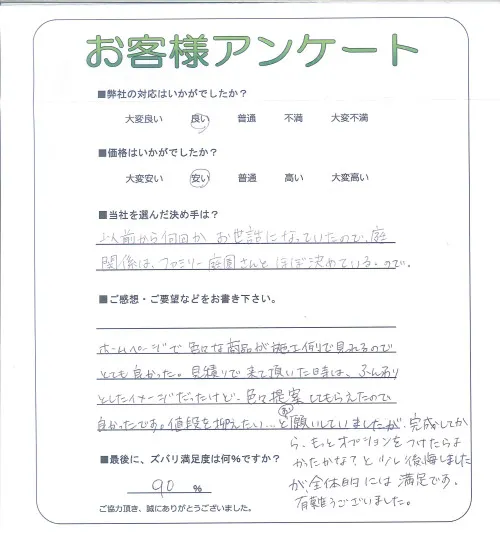 お客様アンケート
■弊社の対応はいかがでしたか？
大変良い 良い 普通 不満 大変不満
■価格はいかがでしたか？
大変安い 安い 普通 高い 大変高い
■当社を選んだ決め手は？
以前から何回か お世話になっていたので、庭
関係は、ファミリー庭園さんと ほぼ決めている。ので。
■ご感想・ご要望などをお書き下さい。
ホームページで 色々な商品が施工例で見れるので
とても良かった。見積りで来て頂いた時は、ふんわり
としたイメージだったけど、色々提案してもらえたので
良かったです。値段を抑えたい…とお願いしていましたが、完成してか
ら、もっとオプションをつけたらよ
かったかな？と少し後悔しました
が、全体的には満足です。
有難うございました。
■最後に、ズバリ満足度は何%ですか？
90 %
ご協力頂き、誠にありがとうございました。